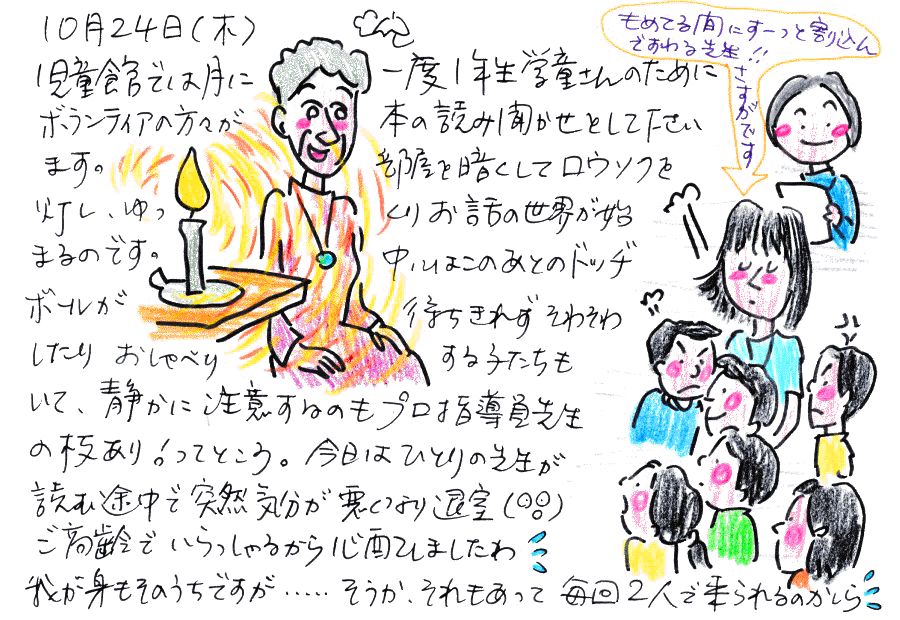 10月24日(木)
児童館では月に一度1年生学童さんのために
ボランティアの方々が本の読み聞かせをして下さい
ます。部屋を暗くしてロウソクを
灯し、ゆっくりお話の世界が始
まるのです。中にはこのあとのドッヂ
ボールが待ちきれずそわそわ
したりおしゃべりする子たちも
いて、静かに注意するのもプロ指導員先生
の技あり!ってところ。今日はひとりの先生が
読む途中で突然気分が悪くなり退室(°°)
ご高齢でいらっしゃるから心配しましたわ
我が身もそのうちですが……そうか、それもあって毎回2人で来られるのかしら
もめてる間にすーっと割込ん
ですわる先生!!
さすがです